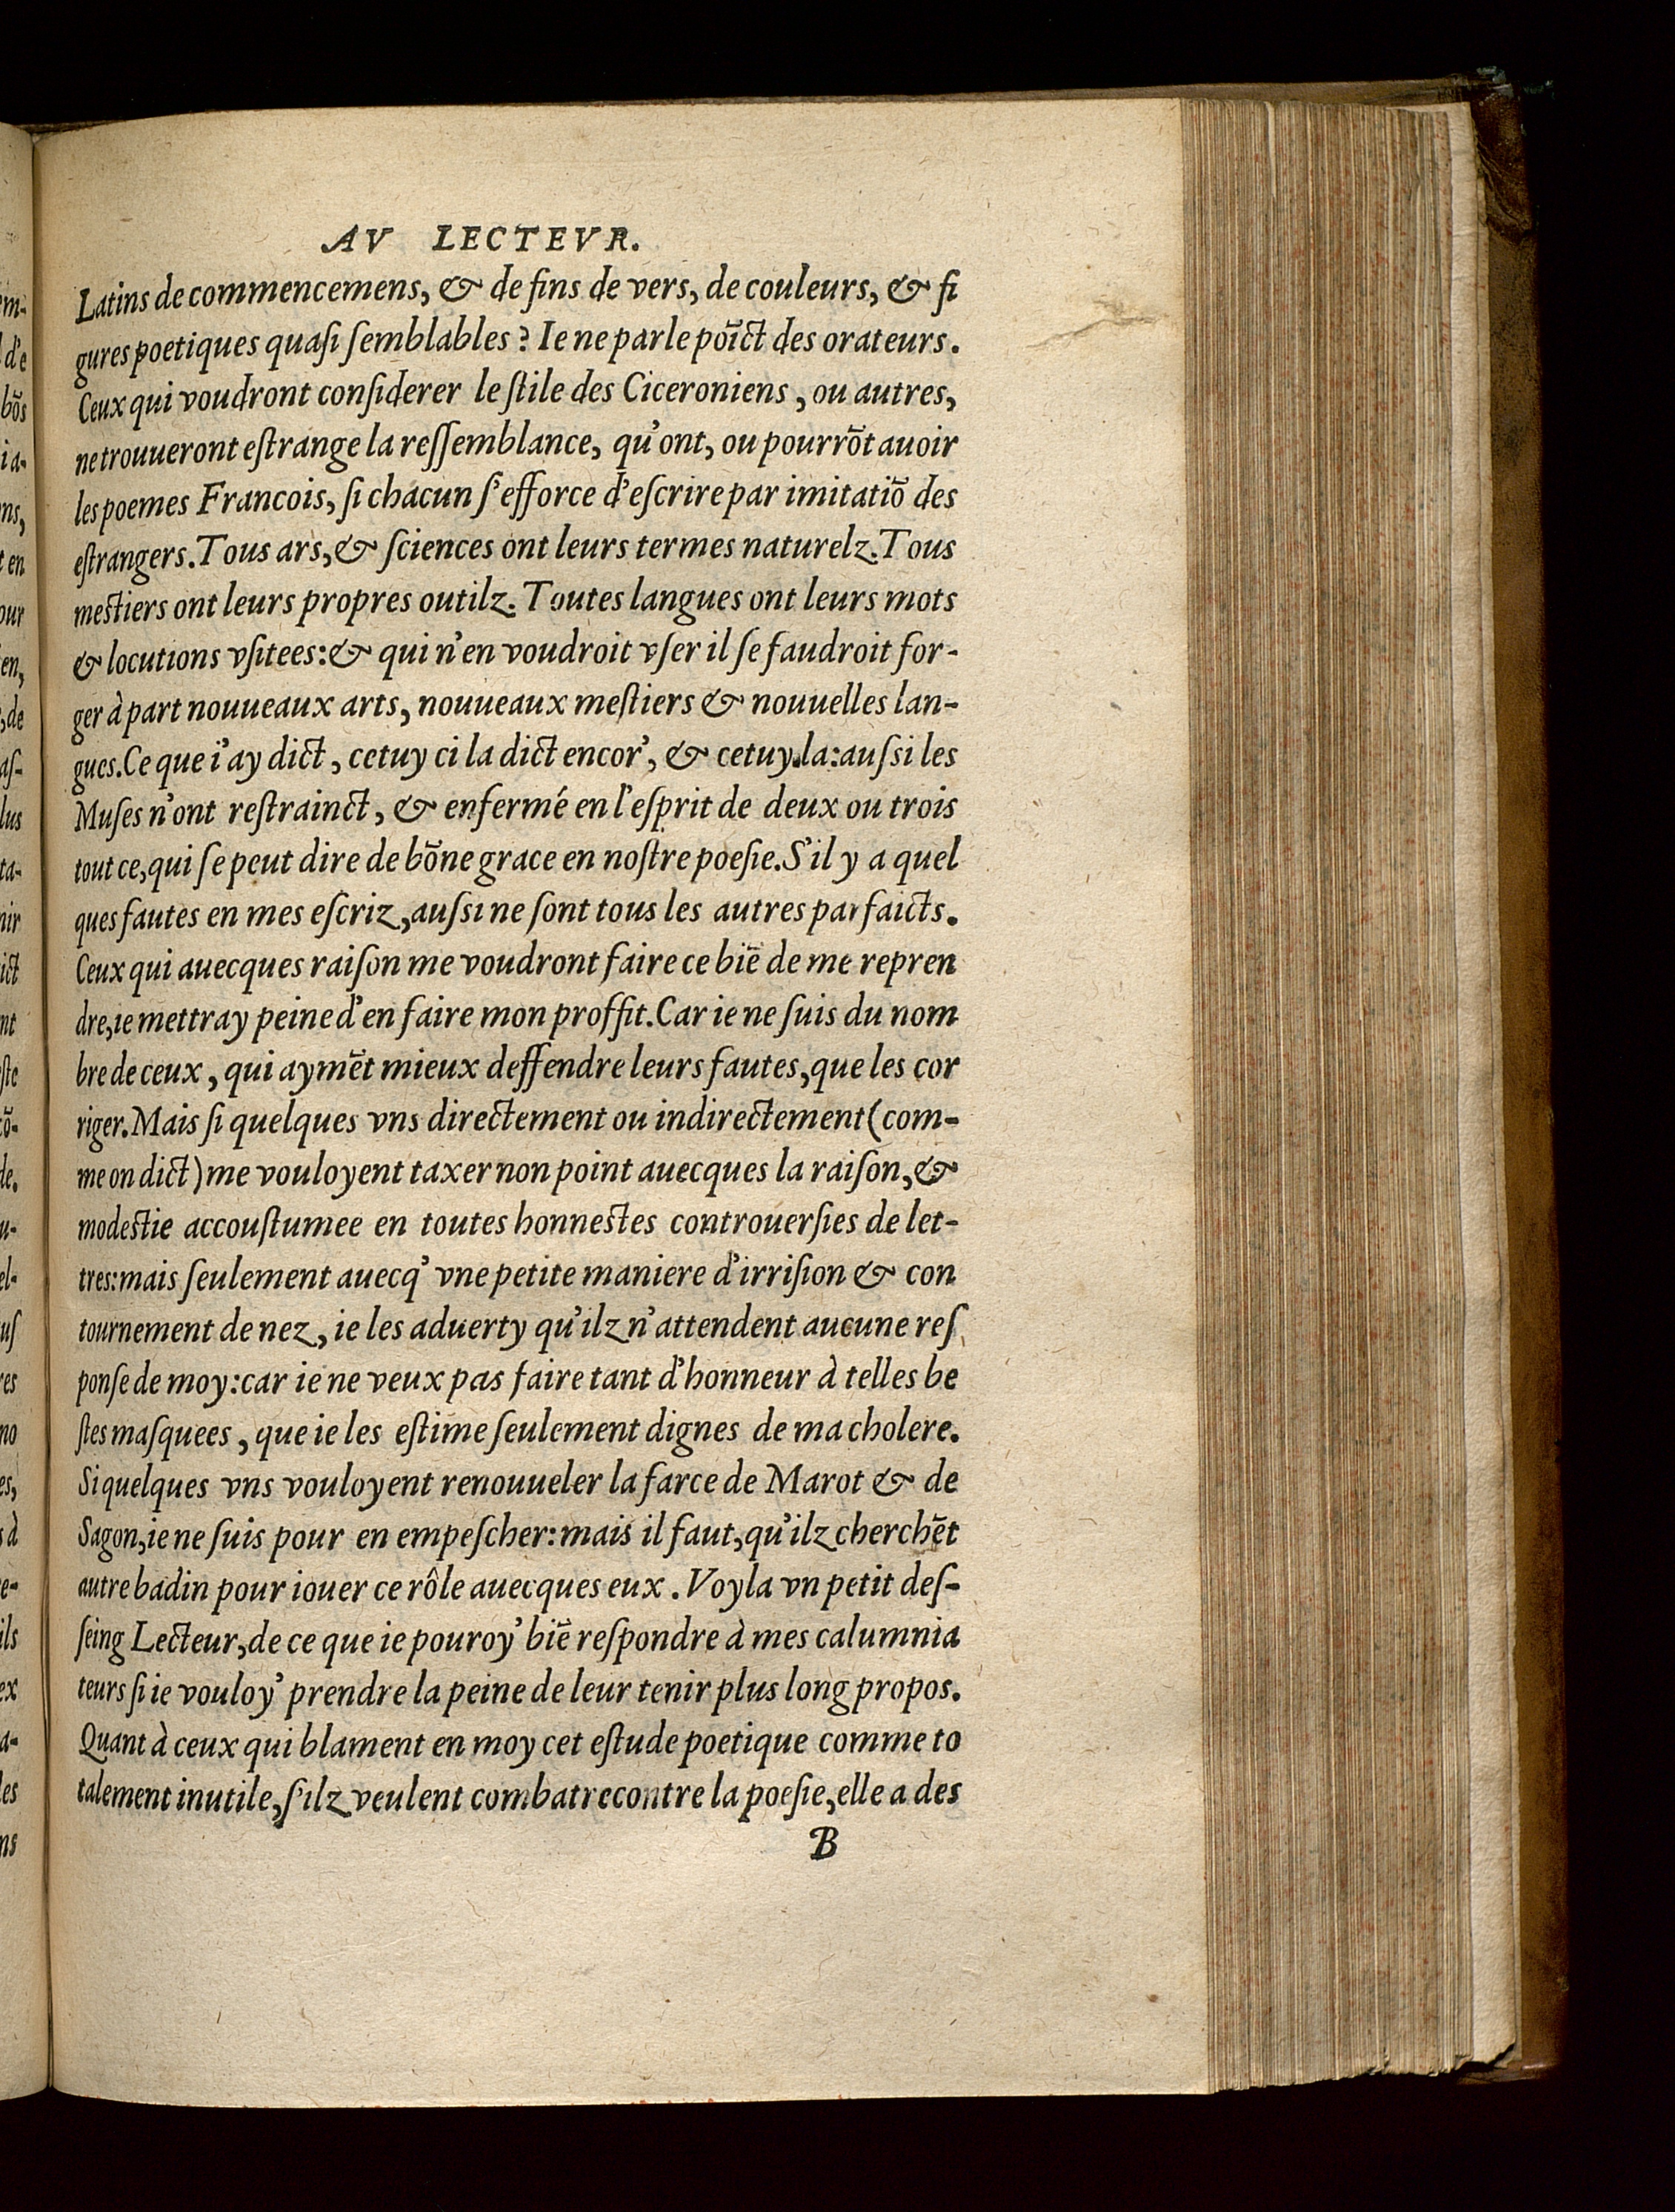 AV LECTEVR.
Latins de commencemens, & de fins de vers, de couleurs, & fi
gures poetiques quaſi ſemblables? Ie ne parle põict des orateurs.
Ceux qui voudront conſiderer le ſtile des Ciceroniens, ou autres,
ne trouueront eſtrange la reſſemblance, qu'ont, ou pourrõt auoir
les poemes Francois, ſi chacun ſ'efforce d'eſcrire par imitatiõ des
eſtrangers. Tous ars, & ſciences ont leurs termes naturelz. Tous
meſtiers ont leurs propres outilz. Toutes langues ont leurs mots
& locutions vſitees: & qui n'en voudroit vſer il ſe faudroit for-
ger à part nouueaux arts, nouueaux meſtiers & nouuelles lan-
gues. Ce que i'ay dict, cetuy ci la dict encor', & cetuy.la: auſsi les
Muſes n'ont reſtrainct, & enfermé en l'eſprit de deux ou trois
tout ce, qui ſe peut dire de bõne grace en noſtre poeſie. S'il y a quel
ques fautes en mes eſcriz, auſsi ne ſont tous les autres parfaicts.
Ceux qui auecques raiſon me voudront faire ce biẽ de me repren
dre, ie mettray peine d'en faire mon proffit. Car ie ne ſuis du nom
bre de ceux, qui aymẽt mieux deffendre leurs fautes, que les cor
riger. Mais ſi quelques vns directement ou indirectement (com-
me on dict) me vouloyent taxer non point auecques la raiſon, &
modeſtie accouſtumee en toutes honneſtes controuerſies de let-
tres: mais ſeulement auecq' vne petite maniere d'irriſion & con
tournement de nez, ie les aduerty qu'ilz n'attendent aucune reſ
ponſe de moy: car ie ne veux pas faire tant d'honneur à telles be
ſtes maſquees, que ie les eſtime ſeulement dignes de ma cholere.
Si quelques vns vouloyent renouueler la farce de Marot & de
Sagon, ie ne ſuis pour en empeſcher: mais il faut, qu'ilz cherchẽt
autre badin pour iouer ce rôle auecques eux. Voyla vn petit deſ-
ſeing Lecteur, de ce que ie pouroy' biẽ reſpondre à mes calumnia
teurs ſi ie vouloy' prendre la peine de leur tenir plus long propos.
Quant à ceux qui blament en moy cet eſtude poetique comme to
talement inutile, ſ'ilz veulent combatre contre la poeſie, elle a des
B